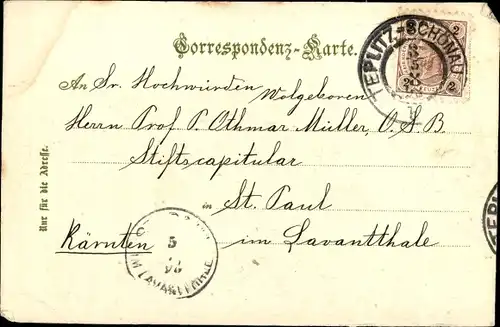 Correspondenz-Karte.
2 2
TEPLITZ-SCHÖNAU
An Sr. Hochwürden
Wolgeboren
Herrn Prof. P. Othmar Müller, O.S.B.
Stiftscapitular
in St. Paul
Kärnten im Lavantthale
5
98
IM LAVANTTHALE
Nur für die Adresse.